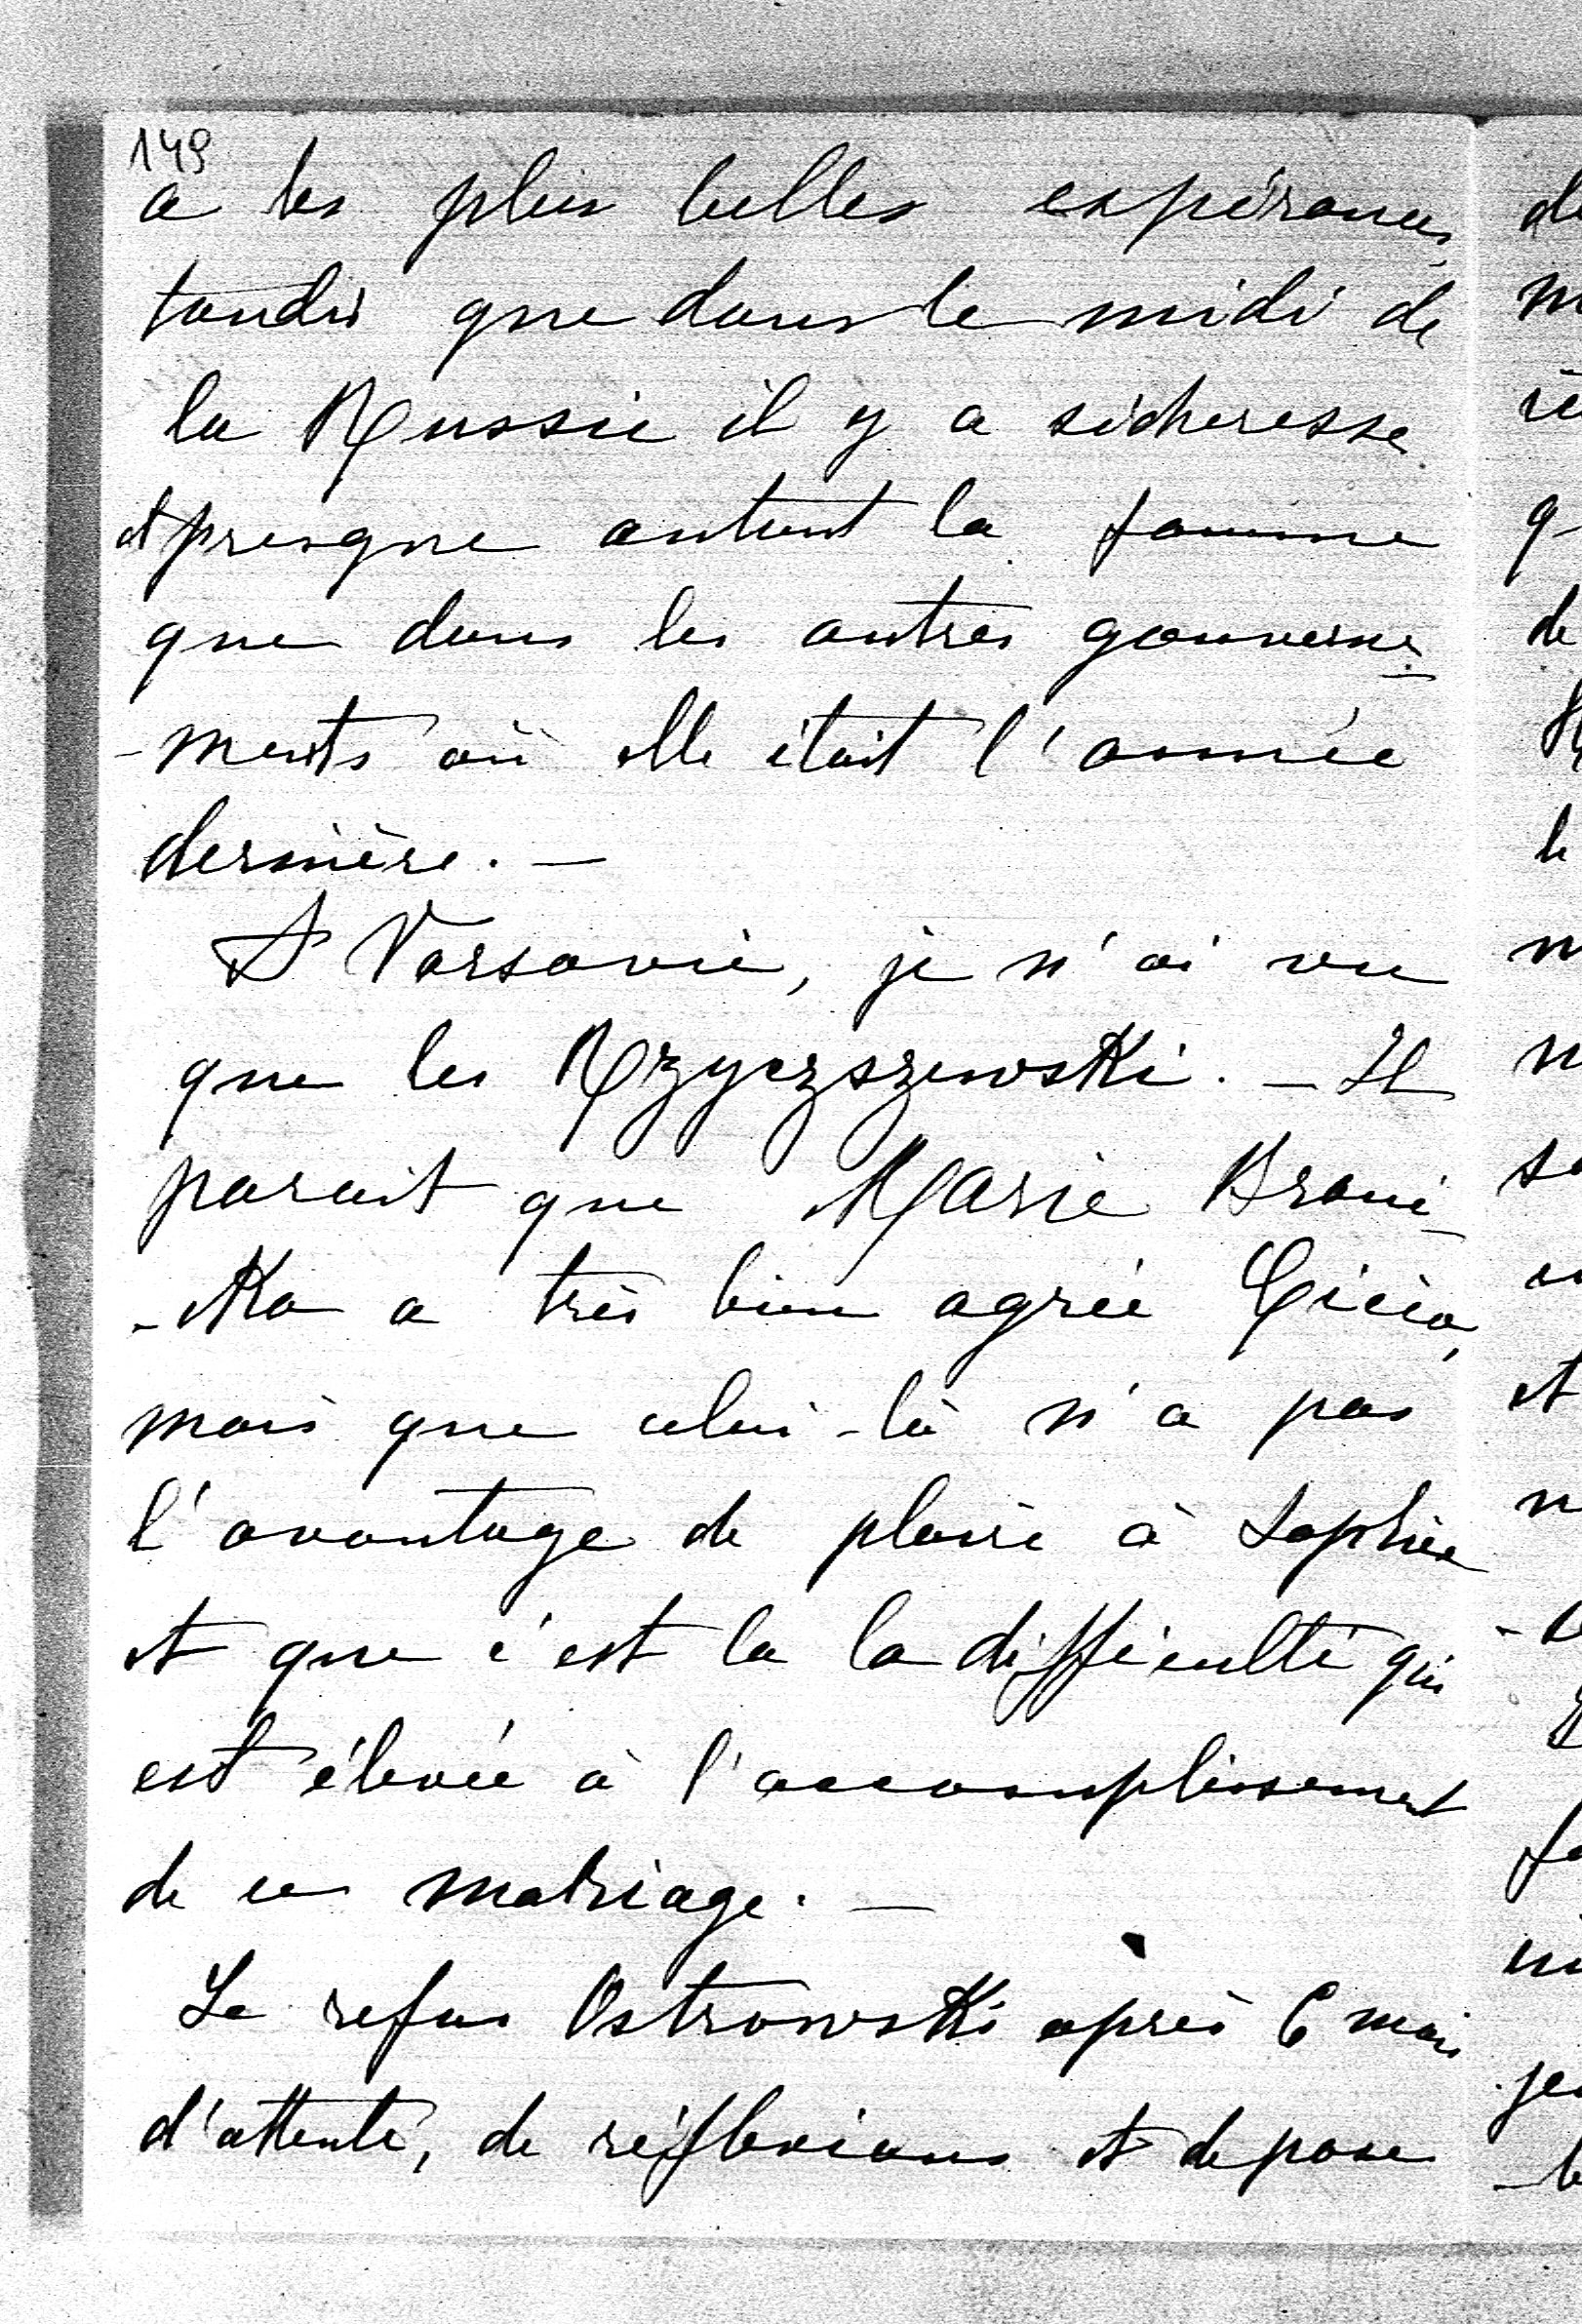 149
a les plus belles espérances,
tandis que dans le midi de
la Russie il y a sécheresse
et presque autant la famine
que dans les autres gouverne-
-ments où elle était l'année
dernière. —
A Varsovie, je n'ai vu
que les Rzyczszewski. — Il
parait que Marie Brani-
-cka a très bien agréé
mais que celui-là n'a pas
l'avantage de plaire à Sophie
et que c'est là la difficulté qui
est élevée à l'accomplissement
de ce mariage. —
Le refus Ostrowski après 6 mois
d'attente, de réflexions et de pose